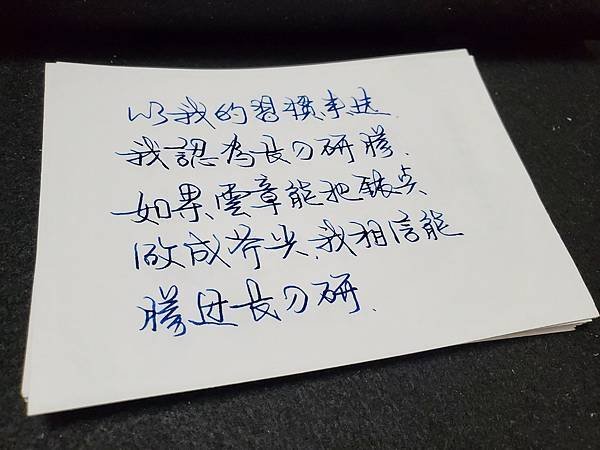 以我的習慣來述.
我認為長刀研勝.
如果雲章能把銥尖
做成斧尖,我相信能
勝過長刀研.